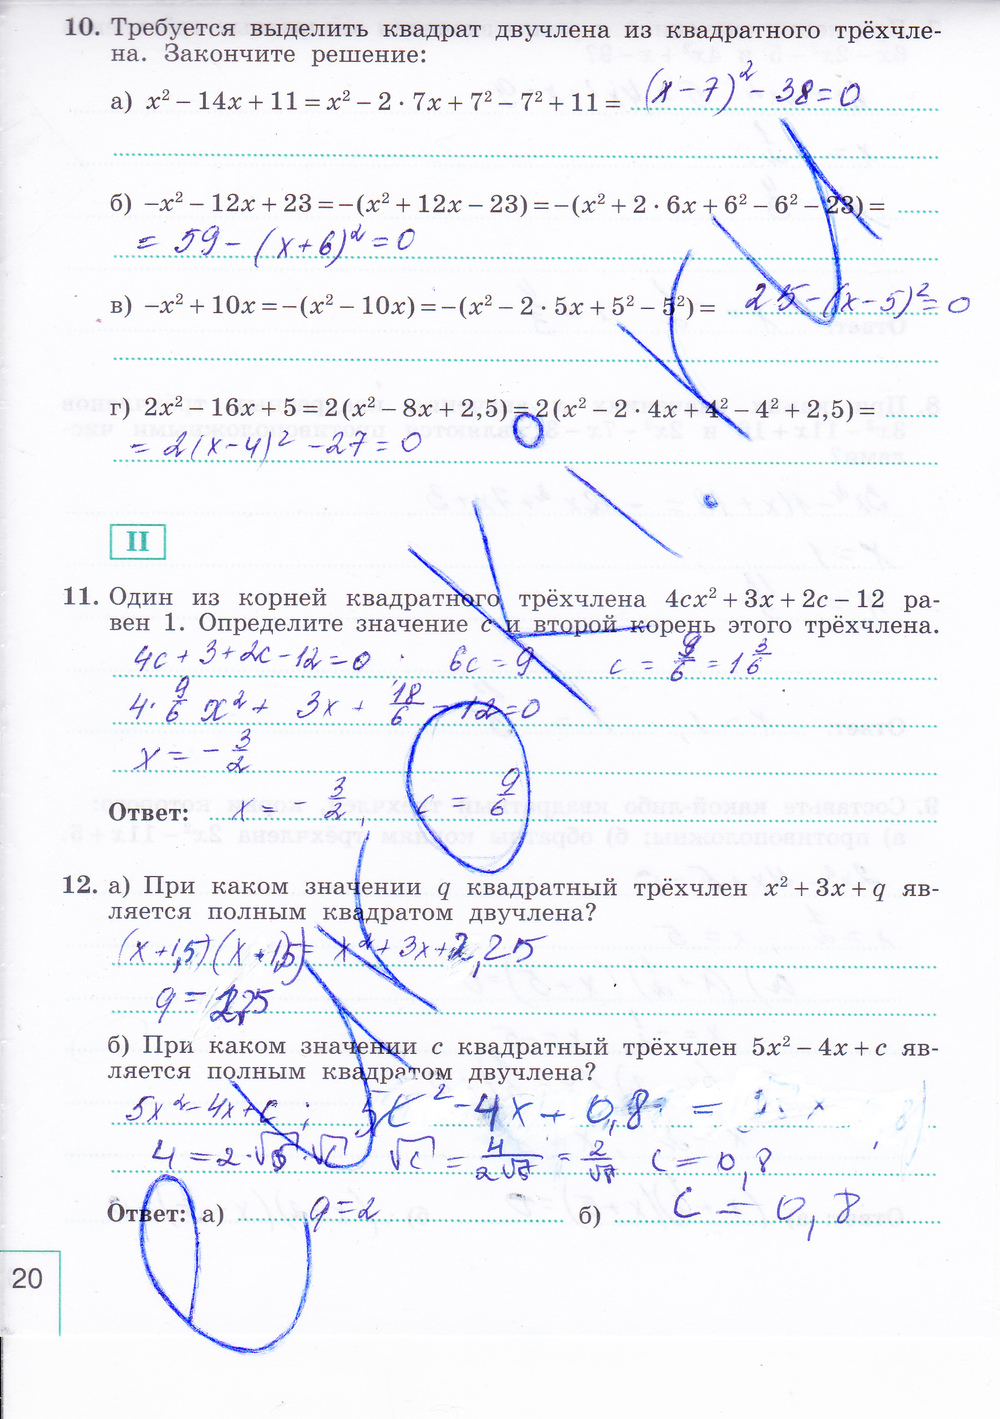 10. Требуется выделить квадрат двучлена из квадратного трёхчле-
на. Закончите решение:
а) x² − 14x + 11 = x² − 2 · 7x + 7² − 7² + 11 = (x − 7)² − 38 = 0
б) −x² − 12x + 23 = −(x² + 12x − 23) = −(x² + 2 · 6x + 6² − 6² − 23) =
= 59 − (x + 6)² = 0
в) −x² + 10x = −(x² − 10x) = −(x² − 2 · 5x + 5² − 5²) = 25 − (x − 5)² = 0
г) 2x² − 16x + 5 = 2(x² − 8x + 2,5) = 2(x² − 2 · 4x + 4² − 4² + 2,5) =
= 2(x − 4)² − 27 = 0
II
11. Один из корней квадратного трёхчлена 4cx² + 3x + 2c − 12 ра-
вен 1. Определите значение c и второй корень этого трёхчлена.
4c + 3 + 2c − 12 = 0 6c = 9 c = 9/6 = 1 3/6
4 · 9/6 x² + 3x + 18/6 − 12 = 0
x = − 3/2
Ответ: x = − 3/2, c = 9/6
12. а) При каком значении q квадратный трёхчлен x² + 3x + q яв-
ляется полным квадратом двучлена?
(x + 1,5)(x + 1,5) = x² + 3x + 2,25
q =
б) При каком значении c квадратный трёхчлен 5x² − 4x + c яв-
ляется полным квадратом двучлена?
5x² − 4x + c ; 5x² − 4x + 0,8 =
4 = 2 · √5 · √c √c = 4/2√5 = 2/√5 c = 0,8
Ответ: а) q = 2 б) c = 0,8
20